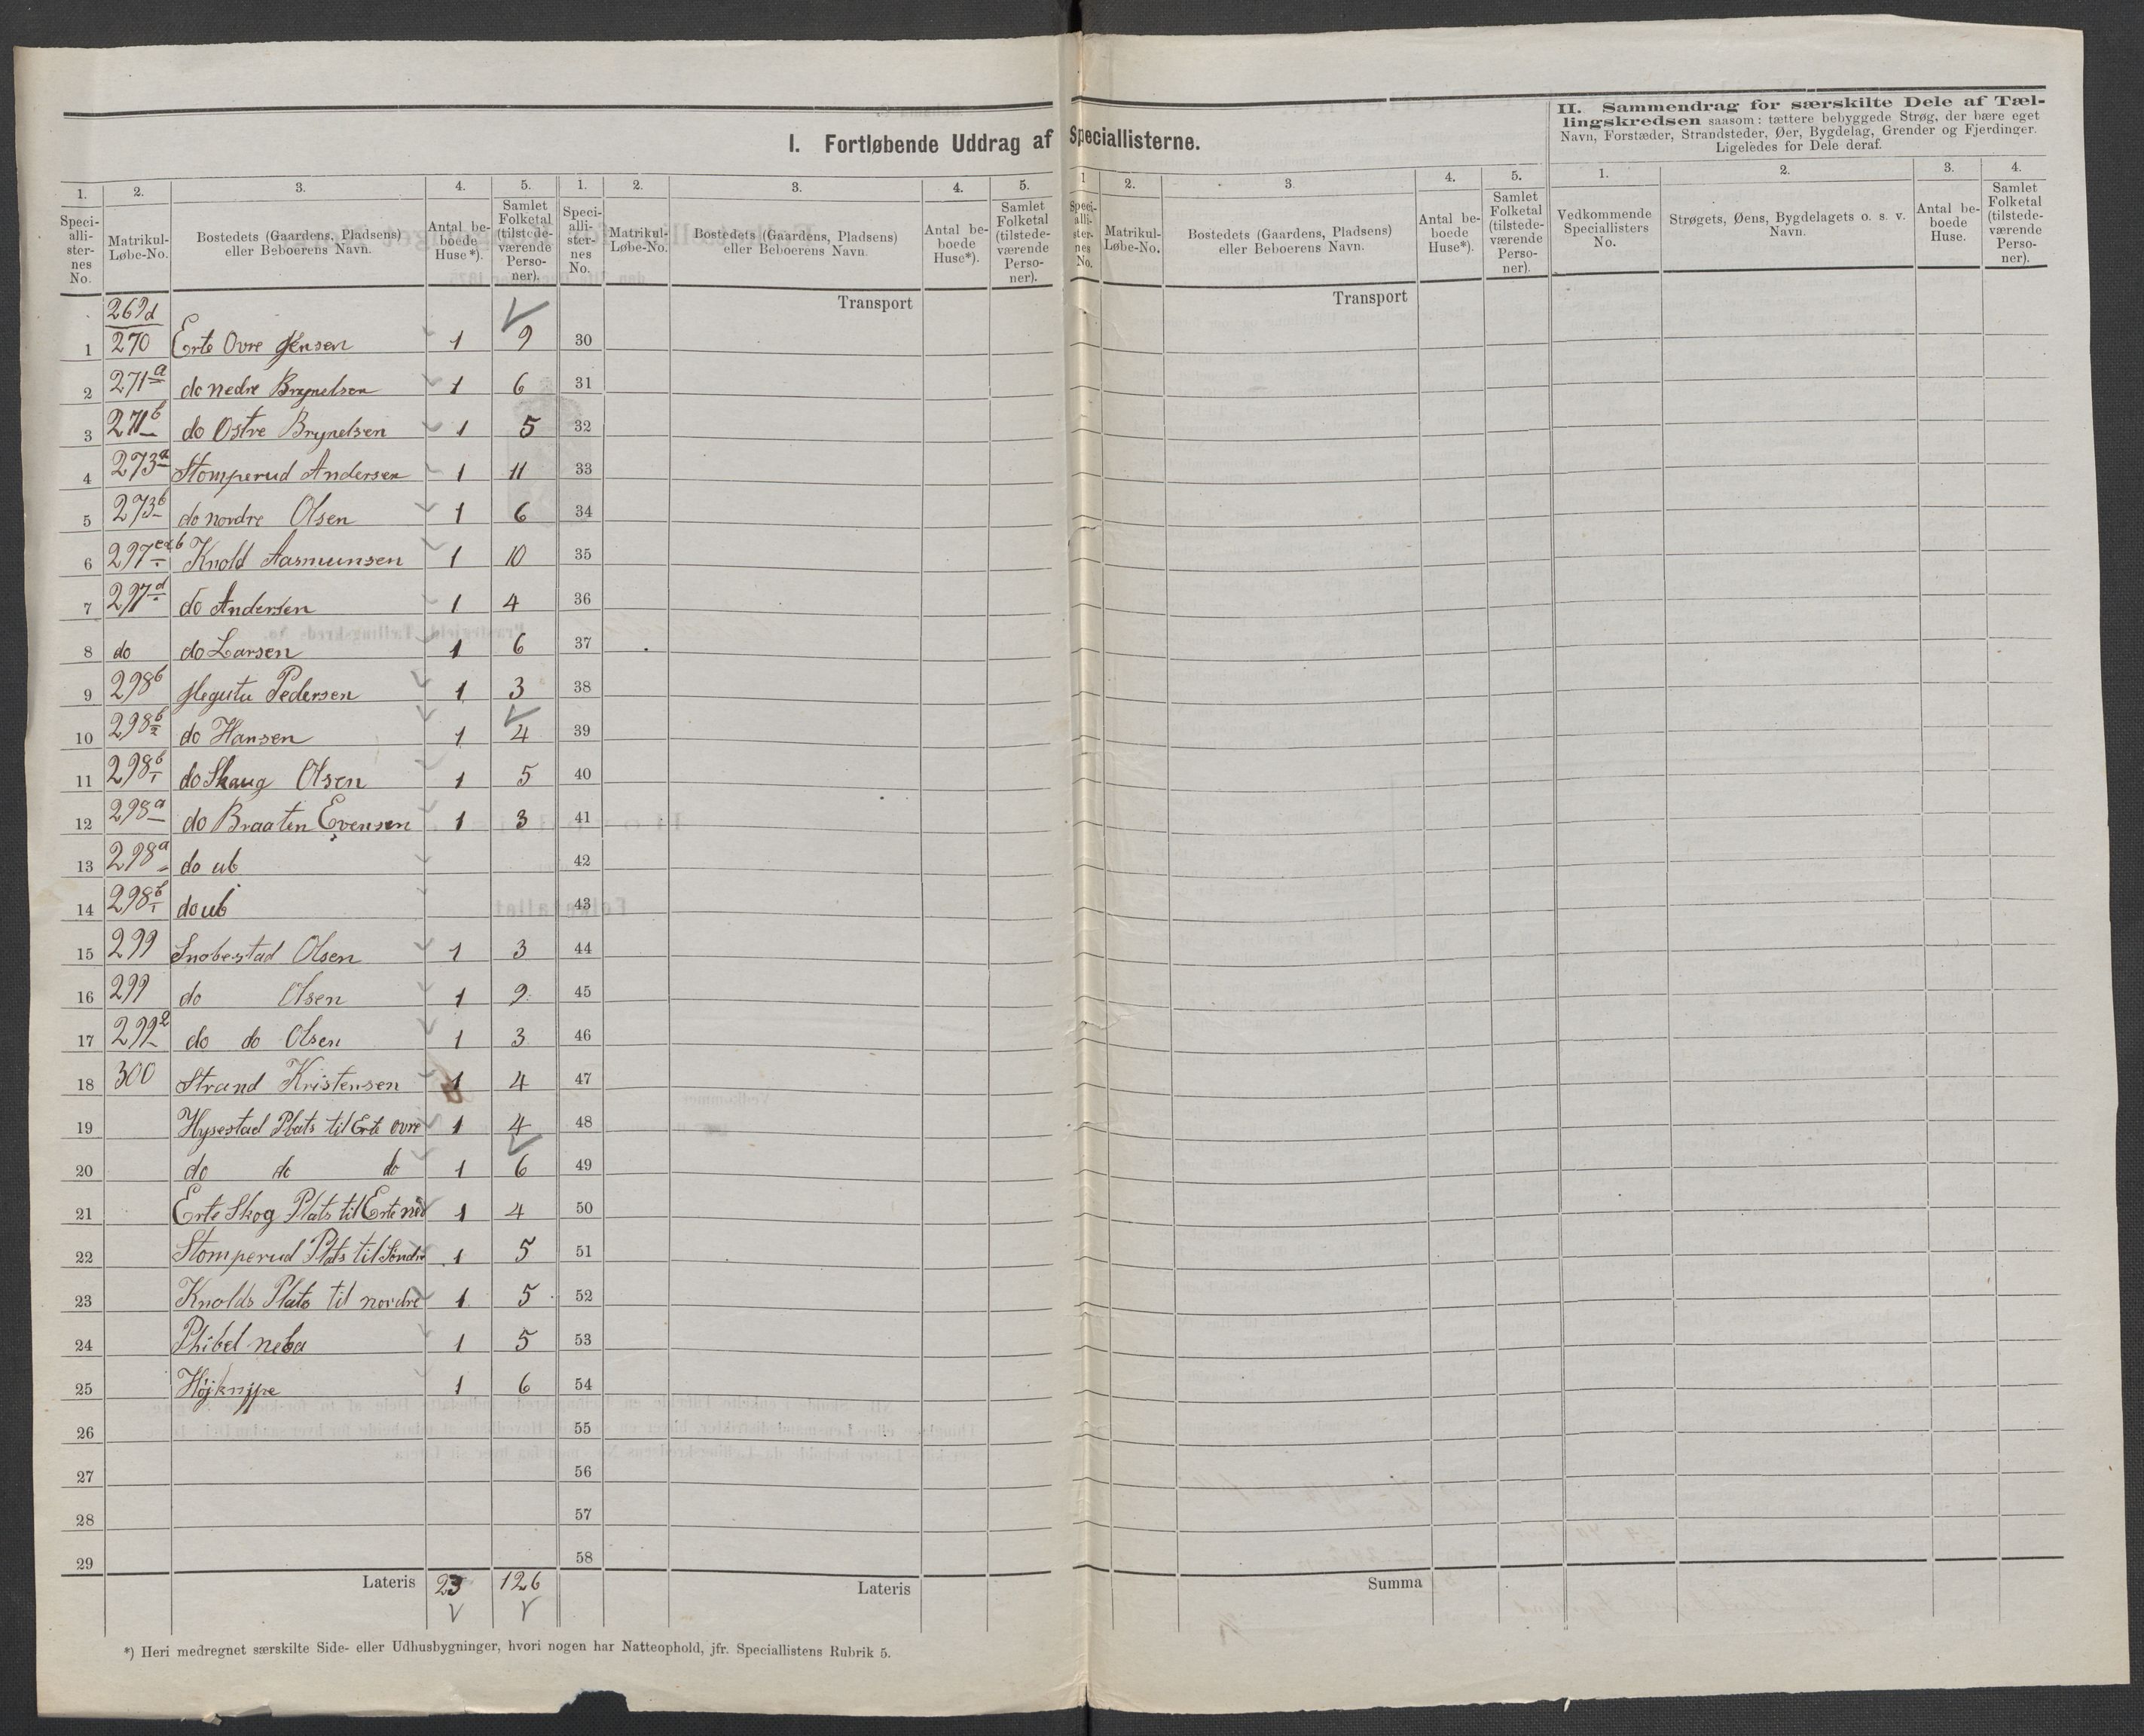 I. Fortløbende Uddrag af Speciallisterne.
II. Sammendrag for særskilte Dele af Tæl-
lingskredsen saasom: tættere bebyggede Strøg, der bære eget
Navn, Forstæder, Strandsteder, Øer, Bygdelag, Grender og Fjerdinger.
Ligeledes for Dele deraf.
1. 2. 3. 4. 5. 1. 2. 3. 4. 5. 1 2. 3. 4. 5. 1. 2. 3. 4.
Speci-
alli-
ster-
nes
No.
Matrikul-
Løbe-No.
Bostedets (Gaardens, Pladsens)
eller Beboerens Navn.
Antal be-
boede
Huse*).
Samlet
Folketal
(tilstede-
værende
Perso-
ner).
Speci-
alli-
ster-
nes
No.
Matrikul-
Løbe-No.
Bostedets (Gaardens, Pladsens)
eller Beboerens Navn.
Antal be-
boede
Huse*).
Samlet
Folketal
(tilstede-
værende
Perso-
ner).
Speci-
alli-
ster-
nes
No.
Matrikul-
Løbe-No.
Bostedets (Gaardens, Pladsens)
eller Beboerens Navn.
Antal be-
boede
Huse*).
Samlet
Folketal
(tilstede-
værende
Perso-
ner).
Vedkommende
Speciallisters
No.
Strøgets, Øens, Bygdelagets o. s. v.
Navn.
Antal be-
boede
Huse.
Samlet
Folketal
(tilstede-
værende
Perso-
ner).
262d Transport Transport
1 270 Erte Ovre Jensen 1 9 30
2 271a do nedre Brynelsen 1 6 31
3 271b do Ostre Brynelsen 1 5 32
4 273a Stomperud Andersen 1 11 33
5 273b do nordre Olsen 1 6 34
6 297 b Knold Aasmunsen 1 10 35
7 297d do Andersen 1 4 36
8 do do Larsen 1 6 37
9 298b Pedersen 1 3 38
10 298b do Hansen 1 4 39
11 298b do Skaug Olsen 1 5 40
12 298a do Braaten Evensen 1 3 41
13 298a do ub 42
14 298b do ub 43
15 299 Snobestad Olsen 1 3 44
16 299 do Olsen 1 9 45
17 299 do do Olsen 1 3 46
18 300 Strand Kristensen 1 4 47
19 Hysestad Plats til Erte ovre 1 4 48
20 do do do 1 6 49
21 Erte Skog Plats til Erte ned 1 4 50
22 Stomperud Plats til Sondr 1 5 51
23 Knolds Plats til nordre 1 5 52
24 1 5 53
25 Højknippe 1 6 54
26 55
27 56
28 57
29 58
Lateris 23 126 Lateris Summa
*) Heri medregnet særskilte Side- eller Udhusbygninger, hvori nogen har Natteophold, jfr. Speciallistens Rubrik 5.